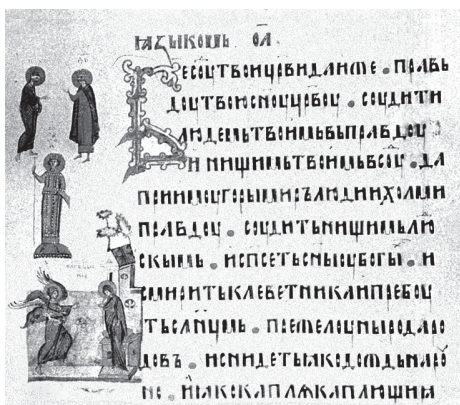 ꙗзыкомъ
Бе соу твои цр҃ви даи же . правь
доу твою сн҃оу цр҃воу . соудити
людемъ твоимъ въ правдоу
и нищимъ твоимъ в соу . да
приимоу горы миръ людии и холми
правдоу . соудить нищимъ лю
скымъ . и спсеть сны оубогы . и
смирить клеветника и пребоу
ть с слн҃цмь . преже лоуны рода ро
довъ . и снидеть ꙗко дождь на роу
но . и ꙗко каплѧ каплющиꙗ